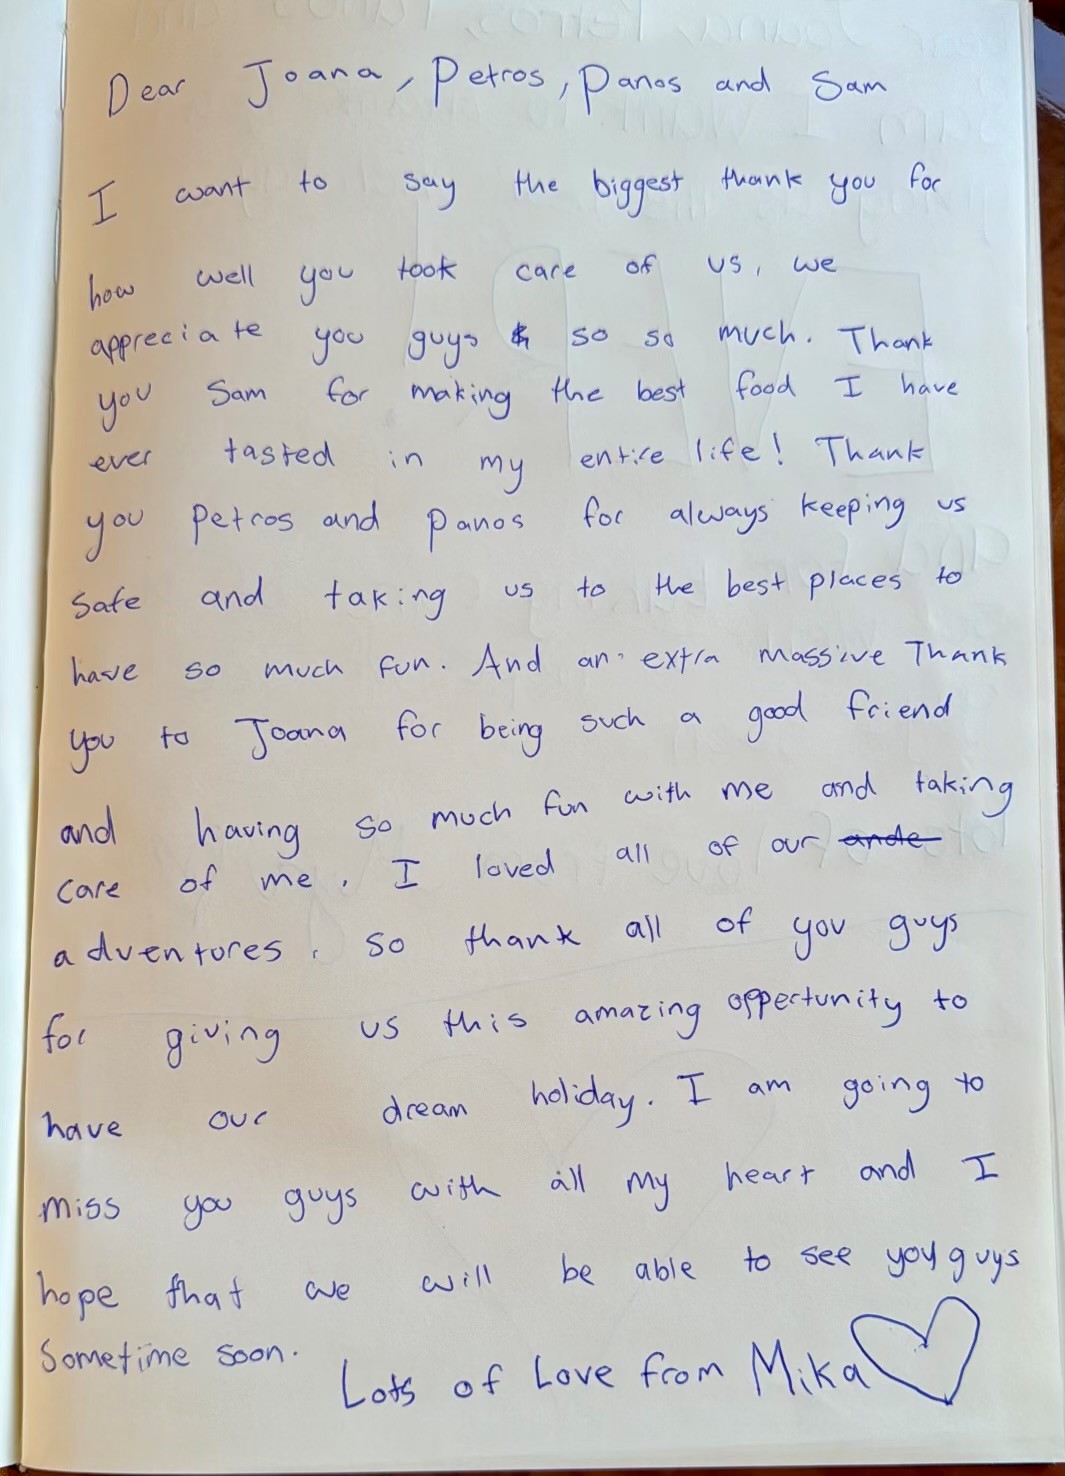 Dear Joana, Petros, Panos and Sam
I want to say the biggest thank you for
how well you took care of us, we
appreciate you guys so so much. Thank
you Sam for making the best food I have
ever tasted in my entire life! Thank
you Petros and Panos for always keeping us
safe and taking us to the best places to
have so much fun. And an extra massive Thank
you to Joana for being such a good friend
and having so much fun with me and taking
care of me. I loved all of our ande
adventures. so thank all of you guys
for giving us this amazing oppertunity to
have our dream holiday. I am going to
miss you guys with all my heart and I
hope that we will be able to see you guys
Sometime soon.
Lots of Love from Mika